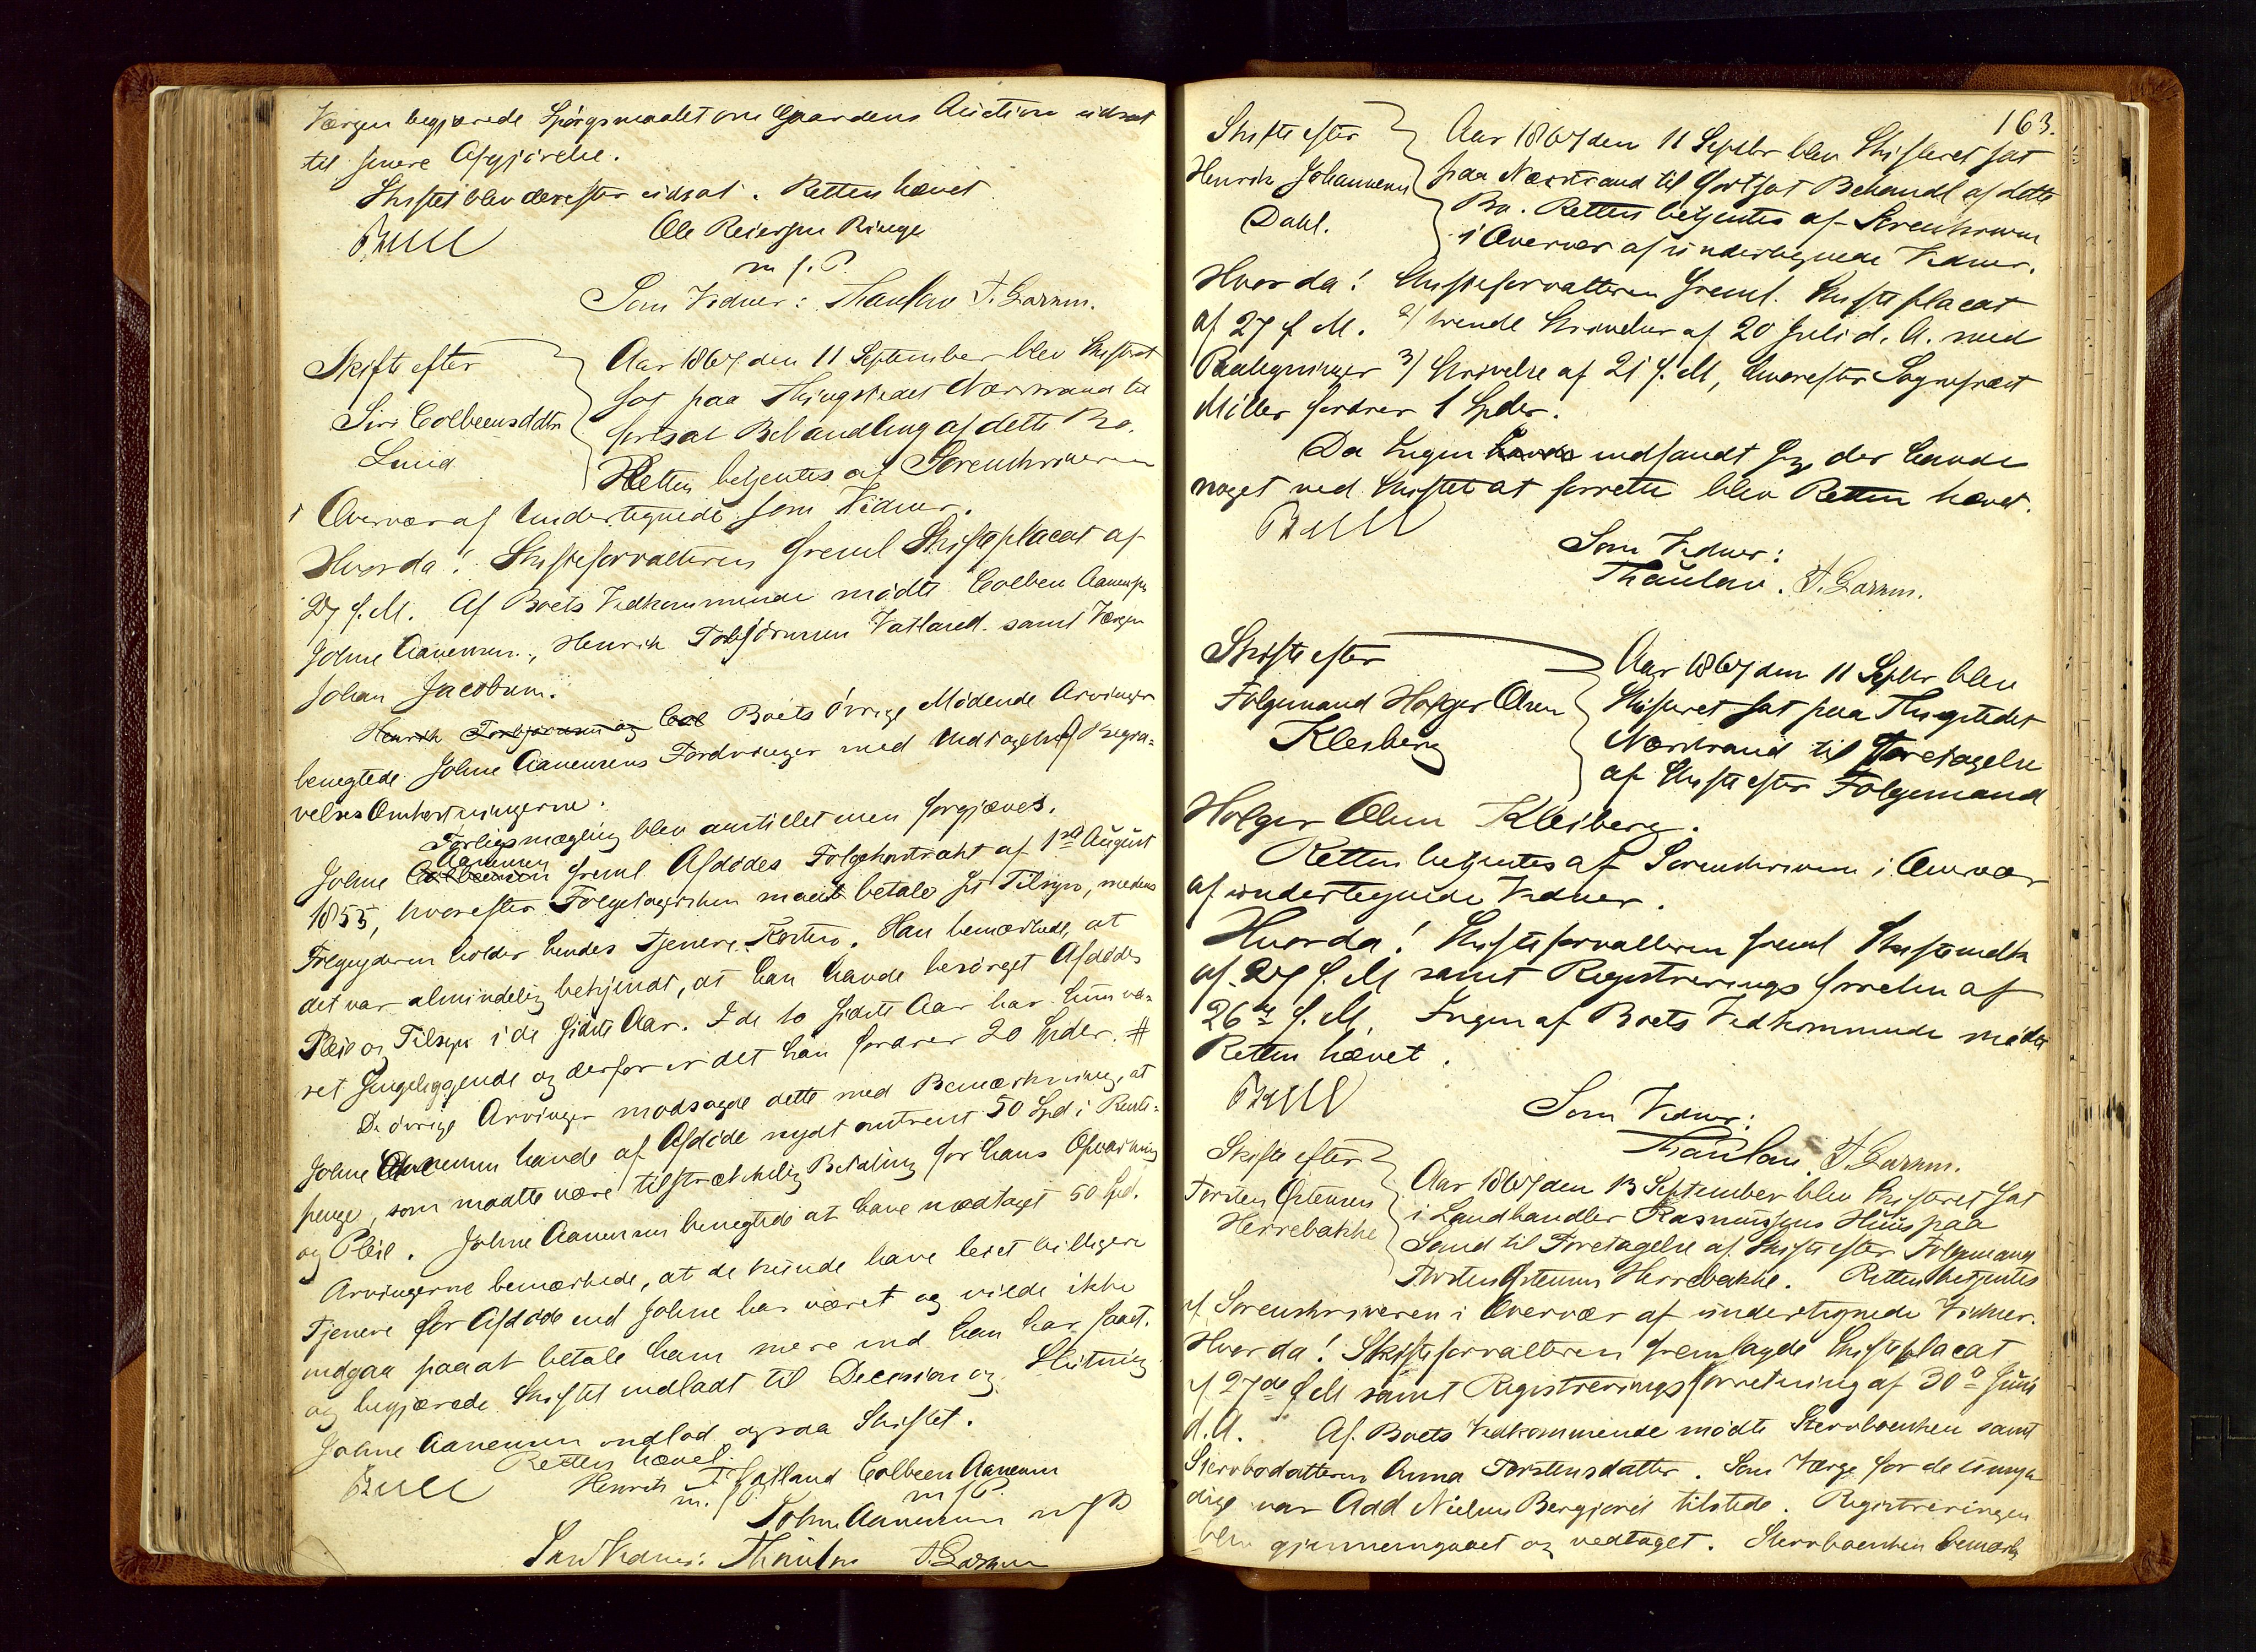 Værgen begjærede Spørgsmaalet om Gaardens Auction udsat
til senere Afgjørelse.
Skiftet blev derefter udsat. Retten hævet
Bull
Ole Reiersen Ringe
m. f. P.
Som Vidner: Thaulow T. Garmm.
Skifte efter
Siri Colbeensdttr
Lund
Aar 1867 den 11 September blev Skifteret
sat paa Thingstedet Nærstrand til
fortsat Behandling af dette Bo.
Retten betjentes af Sorenskriveren
i Overvær af Undertegnede som Vidner.
Hvorda! Skifteforvalteren freml Skifteplacat af
27 f. M. Af Boets Vedkommende mødte Colben Aanensen
Johne Aanensen, Henrik Torbjörnsen Vatland samt Værgen
Johan Jacobsen.
Henrik Torbjörnsen og Col Boets övrige Mödende Arvinger
benegtede Johne Aanensens Fordringer med Undtagelse af Begra-
velses Omkostningerne.
Forligsmægling blev anstillet men forgjæves.
Aanensen
Johne Colbeensen freml Afdödes Folgekontrakt af 1ste August
1855, hvorefter Folgetagersken maatte betale sit Tilsyn, medens
Folgeyderen holder hendes Tjenere Kosten. Han bemærkede, at
det var almindelig bekjendt, at han havde besörget Afdödes
Pleie og Tilsyn i de sidste Aar. I de 10 sidste Aar har hun væ-
ret sengeliggende og derfor er det han fordrer 20 Spdlr. #
De övrige Arvinger modsagde dette med Bemærkning, at
Johne Aanensen havde af Afdöde nydt omtrent 50 Spd i Rente-
penge, som maatte være tilstrækkelig Betaling for hans Opvartning
og Pleie. Johne Aanensen benegtede at have modtaget 50 Spd.
Arvingerne bemærkede, at de kunde have leiet billigere
Tjenere for Afdöde end Johne har været og vilde ikke
indgaa paa at betale ham mere end han har faaet.
og begjærede Skiftet indladt til Decision og Slutning
Johne Aanensen indlod ogsaa Skiftet.
Retten hævet.
Bull
Henrik T. Vatland Colbeen Aanensen
m. f. P. m f P.
Johne Aanensen m f P
Som Vidner: Thaulow T. Garmm
163.
Skifte efter
Henrik Johannesen
Dahl.
Aar 1867 den 11 Septbr blev Skifteret sat
paa Nærstrand til fortsat Behandl af dette
Bo. Retten betjentes af Sorenskriveren
i Overvær af undertegnede Vidner.
Hvorda! Skifteforvalteren freml. Skifteplacat
af 27 f. M. 2/ trende Skrivelser af 20 Juli d. A. med
Paategninger 3/ Skrivelse af 21 f. M, hvorefter Sognepræst
Miller fordrer 1 Spdlr.
Da Ingen havde indfandt sig, der havde
noget ved Skiftet at forrette blev Retten hævet.
Bull
Som Vidner:
Thaulow. T. Garmm.
Skifte efter
Folgemand Holger Olsen
Kleiberg
Aar 1867 den 11 Septbr blev
Skifteret sat paa Thingstedet
Nærstrand til Foretagelse
af Skifte efter Folgemand
Holger Olsen Kleiberg.
Retten betjentes af Sorenskriveren i Overvær
af undertegnede Vidner.
Hvorda! Skifteforvalteren freml
af 27 f. M samt Registrerings forretn af
26de f. M. Ingen af Boets Vedkommende mödte
Retten hævet.
Bull
Som Vidner:
Thaulow T. Garmm.
Skifte efter
Torsten Ostensen
Herrebakke
Aar 1867 den 13 September blev Skifteret sat
i Landhandler Rasmussens Huus paa
Sand til Foretagelse af Skifte efter Folgemand
Torsten Ostensen Herrebakke. Retten betjentes
af Sorenskriveren i Overvær af undertegnede Vidner.
Hvorda! Skifteforvalteren fremlagde Skifteplacat
af 27de f M samt Registreringsforretning af 30te Juni
d. A. Af Boets Vedkommende mödte Stervboenken samt
Stervbodatteren Anna Torstensdatter. Som Værge for de umyn
dige var Add Nielsen Bergjord tilstede. Registreringen
blev gjennemgaaet og vedtaget. Stervboenken bemærk